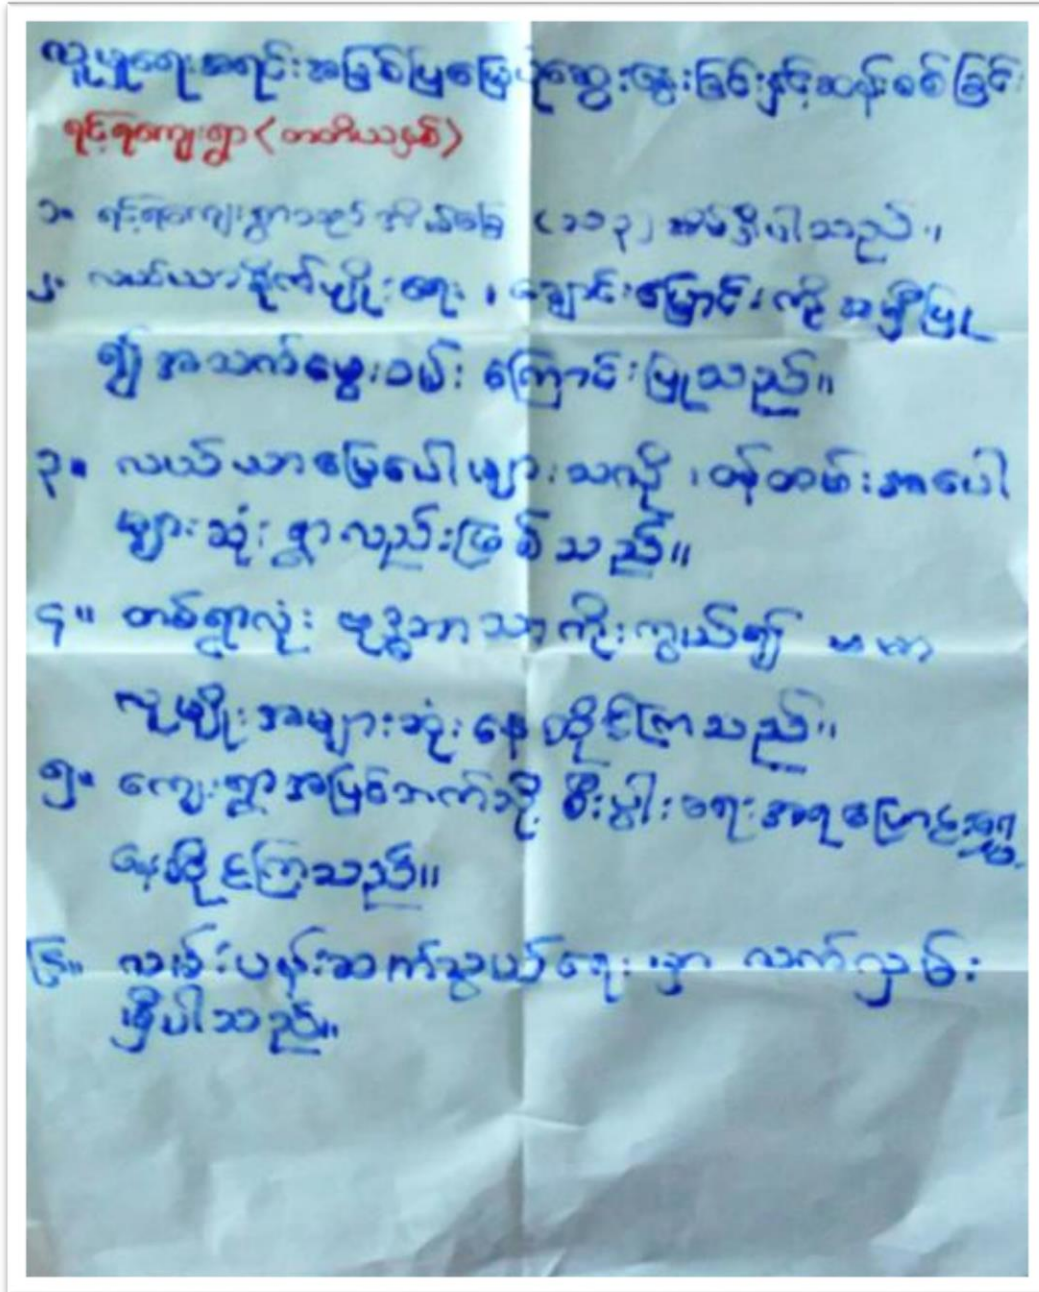 လူမှုရေးအရင်းအမြစ်ပြမြေပုံဆွေးနွေးခြင်းနှင့်ဆန်းစစ်ခြင်း
ရင့်ရကျေးရွာ (တတိယနှစ်)
၁။ ရင့်ရကျေးရွာသည် အိမ်ခြေ (၁၁၃) အိမ်ရှိပါသည်။
၂။ လယ်ယာစိုက်ပျိုးရေး၊ ချောင်းမြောင်းကို အမှီပြု
၍ အသက်မွေးဝမ်း ကြောင်းပြုသည်။
၃။ လယ်ယာမြေပေါများသလို၊ ဝန်ထမ်းအပေါ
များဆုံး ရွာလည်းဖြစ်သည်။
၄။ တစ်ရွာလုံး ဗုဒ္ဓဘာသာကိုးကွယ်၍ ဗမာ
လူမျိုးအများဆုံးနေထိုင်ကြသည်။
၅။ ကျေးရွာအပြင်ဘက်သို့ စီးပွါးရေးအရပြောင်းရွှေ့
နေထိုင်ကြသည်။
၆။ လမ်းပန်းဆက်သွယ်ရေးမှာ လက်လှမ်း
မှီပါသည်။